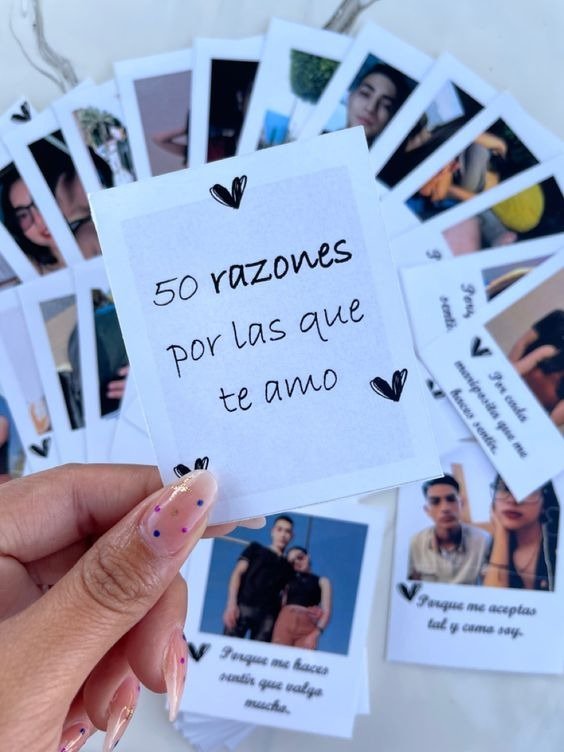 50 razones
por las que
te amo
Por
senti
Por cada
mariposita que me
haces sentir.
Porque me aceptas
tal y como soy.
Porque me haces
sentir que valgo
mucho.